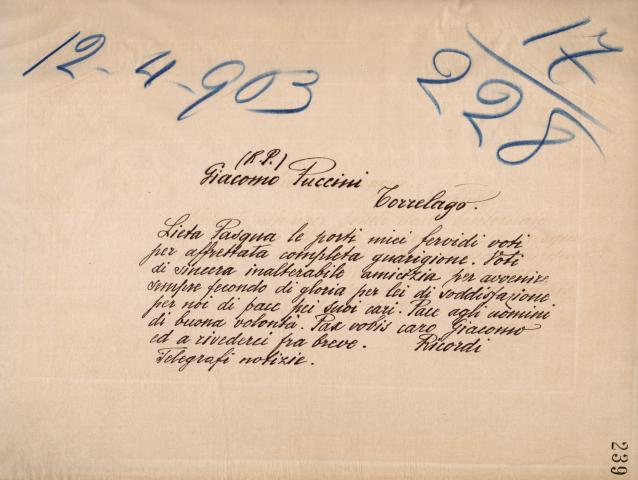 12-4-903
17/228
(R P.)
Giacomo Puccini
Torrelago.
Lieta Pasqua le porti miei fervidi voti
per affrettata completa guarigione. Voti
di sincera inalterabile amicizia per avvenire
sempre fecondo di gloria per lei di soddisfazione
per noi di pace pei suoi cari. Pace agli uomini
di buona volontà. Pax vobis caro Giacomo
ed a rivederci fra breve. Ricordi
Telegrafi notizie.
239